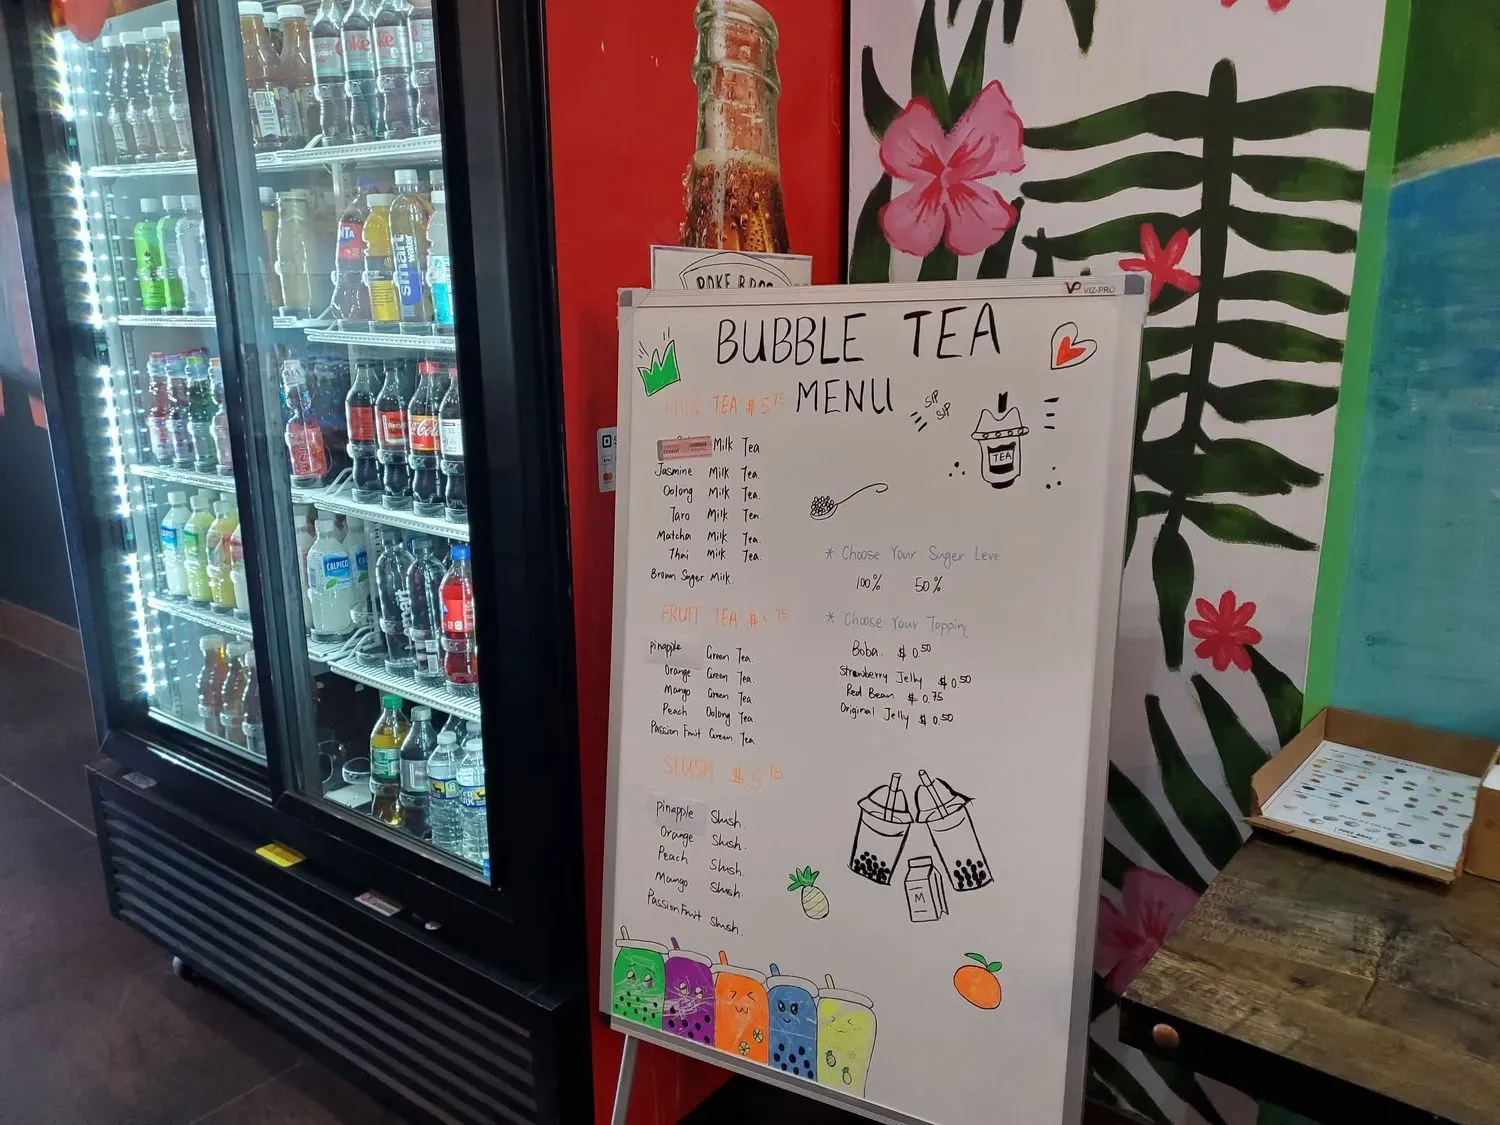 Coke
ke
smart
water
CALPICO
Coca-Cola
POKE BROS
VP VIZ-PRO
BUBBLE TEA
MENU
MILK TEA $ 5.75
Milk Tea
Jasmine Milk Tea.
Oolong Milk Tea.
Taro Milk Tea.
Matcha Milk Tea.
Thai Milk Tea.
Brown Suger Milk.
FRUIT TEA $ 5.75
pineapple Green Tea.
Orange Green Tea.
Mango Green Tea.
Peach Oolong Tea.
Passion Fruit Green Tea.
SLUSH $ 5.75
pineapple Slush.
Orange Slush.
Peach Slush.
Mango Slush.
Passion Fruit Slush.
SIP
SIP
TEA
* Choose Your Suger Leve
100% 50%
* Choose Your Toppin
Boba. $ 0.50
Strawberry Jelly $ 0.50
Red Bean $ 0.75
Original Jelly $ 0.50
M